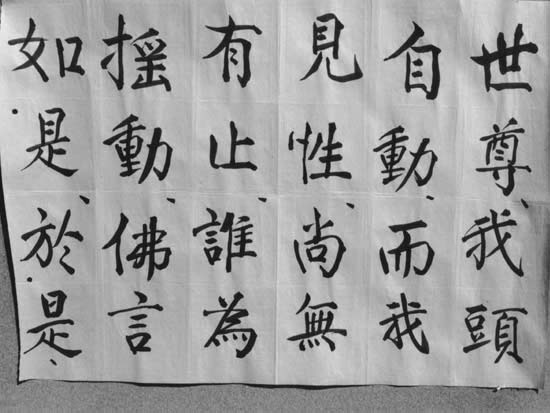 世尊、我頭
自動、而我
見性、尚無
有止、誰為
搖動、佛言
如是、於是、